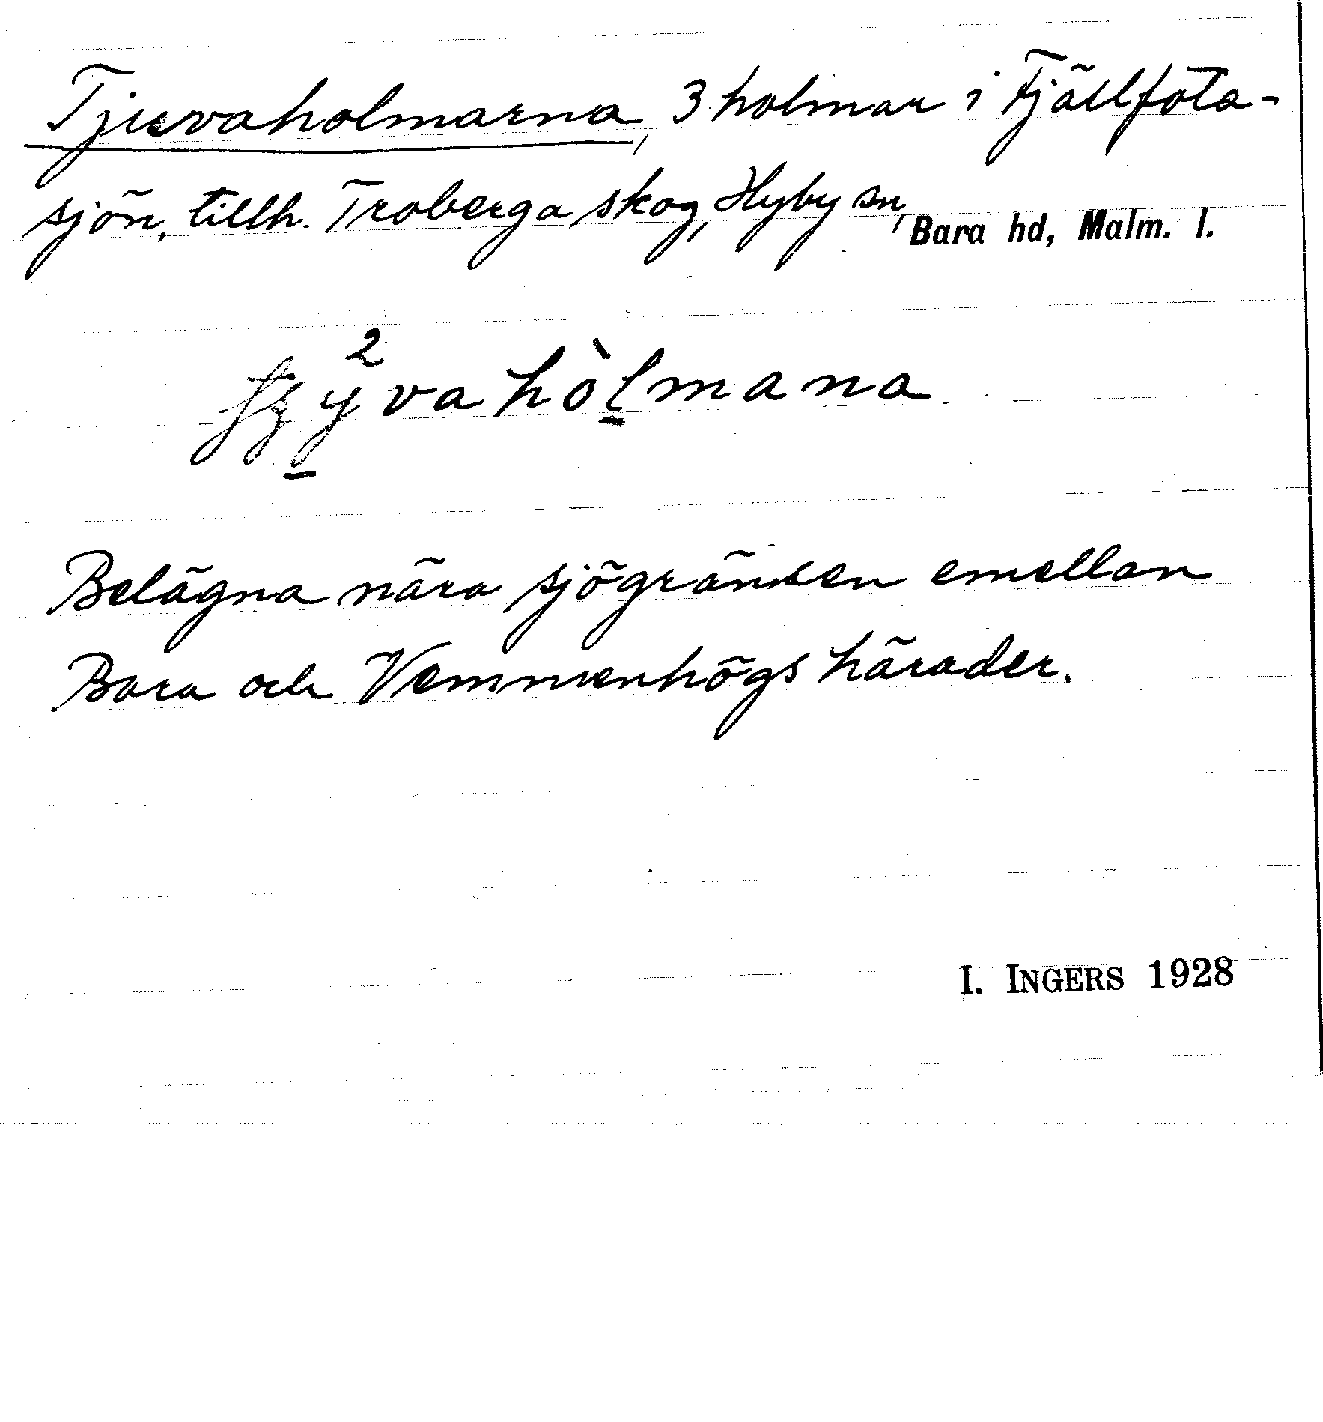 Tjuvaholmarna, 3 holmar i Fjällfota-
sjön, tillh. Troberga skog, Hyby sn, Bara hd, Malm. l.
2
vahòlmana
Belägna nära sjögränsen emellan
Bara och Vemmenhögs härader.
I. INGERS 1928